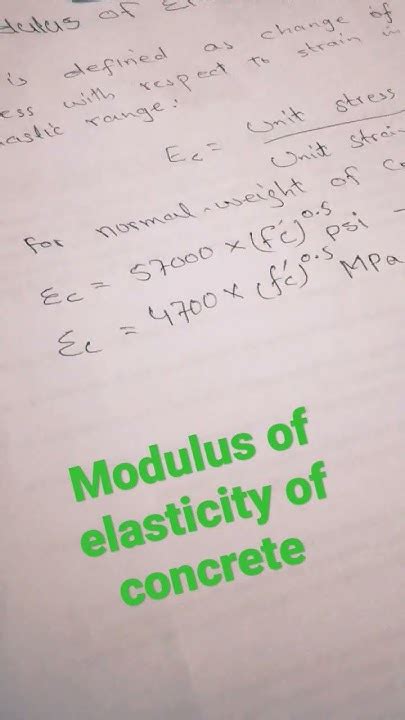 dulus of El
is defined as change of
ess with respect to strain in
lastic range.
Ec = Unit stress
Unit strain
For normal-weight of Co
Ec = 57000 × (f'c)^0.5 psi -
Ec = 4700 × (f'c)^0.5 MPa
Modulus of
elasticity of
concrete